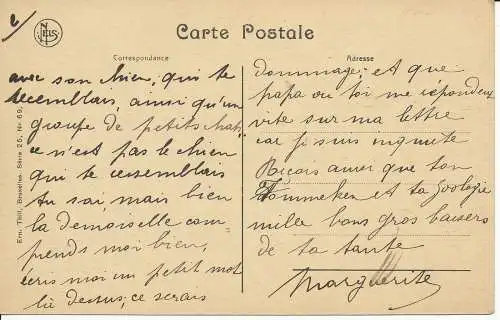 2/
NELS
Carte Postale
Correspondance
Adresse
avec son chien, qui te
ressemblais, ainsi qu'un
groupe de petits chats
ce n'est pas le chien
qui te ressemblais
tu sai, mais bien
la demoiselle com
prends moi bien,
écris moi un petit mot
là dessus; ce serais
dommage; et que
papa ou toi me répondeu
vite sur ma lettre
car je suis inquiète
Reçois ainsi que ton
et ta Zoologie
mille bons gros baisers
de ta tante
Marguerite
Ern. Thill, Bruxelles. Série 25, No 69.